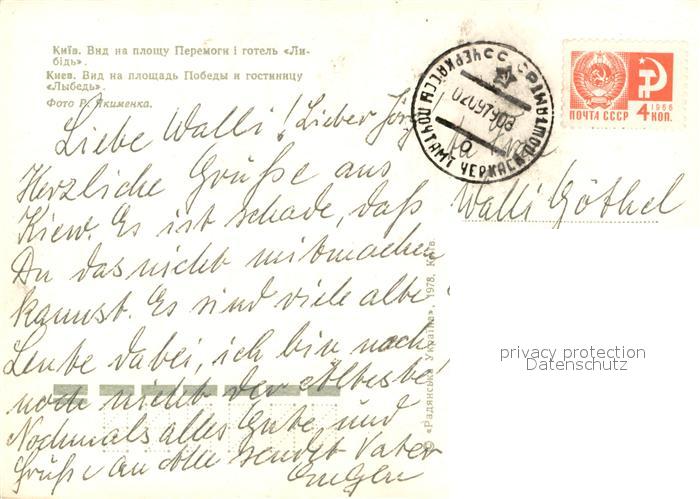 Київ. Вид на площу Перемоги і готель «Ли-
бідь».
Киев. Вид на площадь Победы и гостиницу
«Лыбедь».
Фото Р. Якименка.
ПОЧТА СССР
1966
4 КОП.
ПОЧТАМТ ЧЕРКАССЫ
Liebe Walli! Lieber Jörg
Herzliche Grüße aus
Kiew. Es ist schade, daß
Du das nicht mitmachen
kannst. Es sind viele alte
Leute dabei, ich bin noch
nicht der Älteste!
Nochmals alles Gute, und
Grüße an alle sendet Vater
Walli Göthel
© «Радянська Україна», 1978, Київ.
privacy protection
Datenschutz